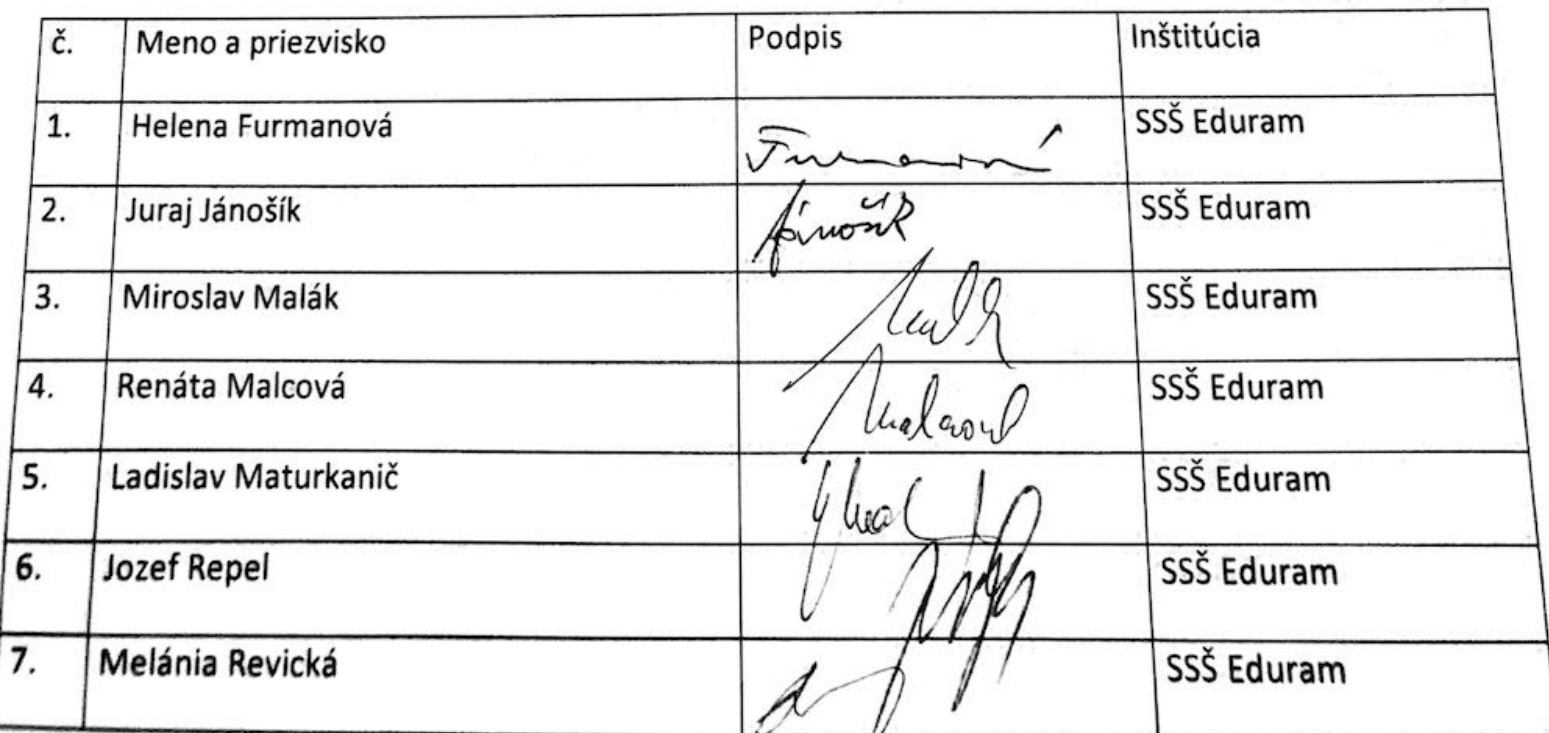 č. Meno a priezvisko Podpis Inštitúcia
1. Helena Furmanová Furmanová SSŠ Eduram
2. Juraj Jánošík Jánošík SSŠ Eduram
3. Miroslav Malák SSŠ Eduram
4. Renáta Malcová Malcová SSŠ Eduram
5. Ladislav Maturkanič SSŠ Eduram
6. Jozef Repel SSŠ Eduram
7. Melánia Revická SSŠ Eduram